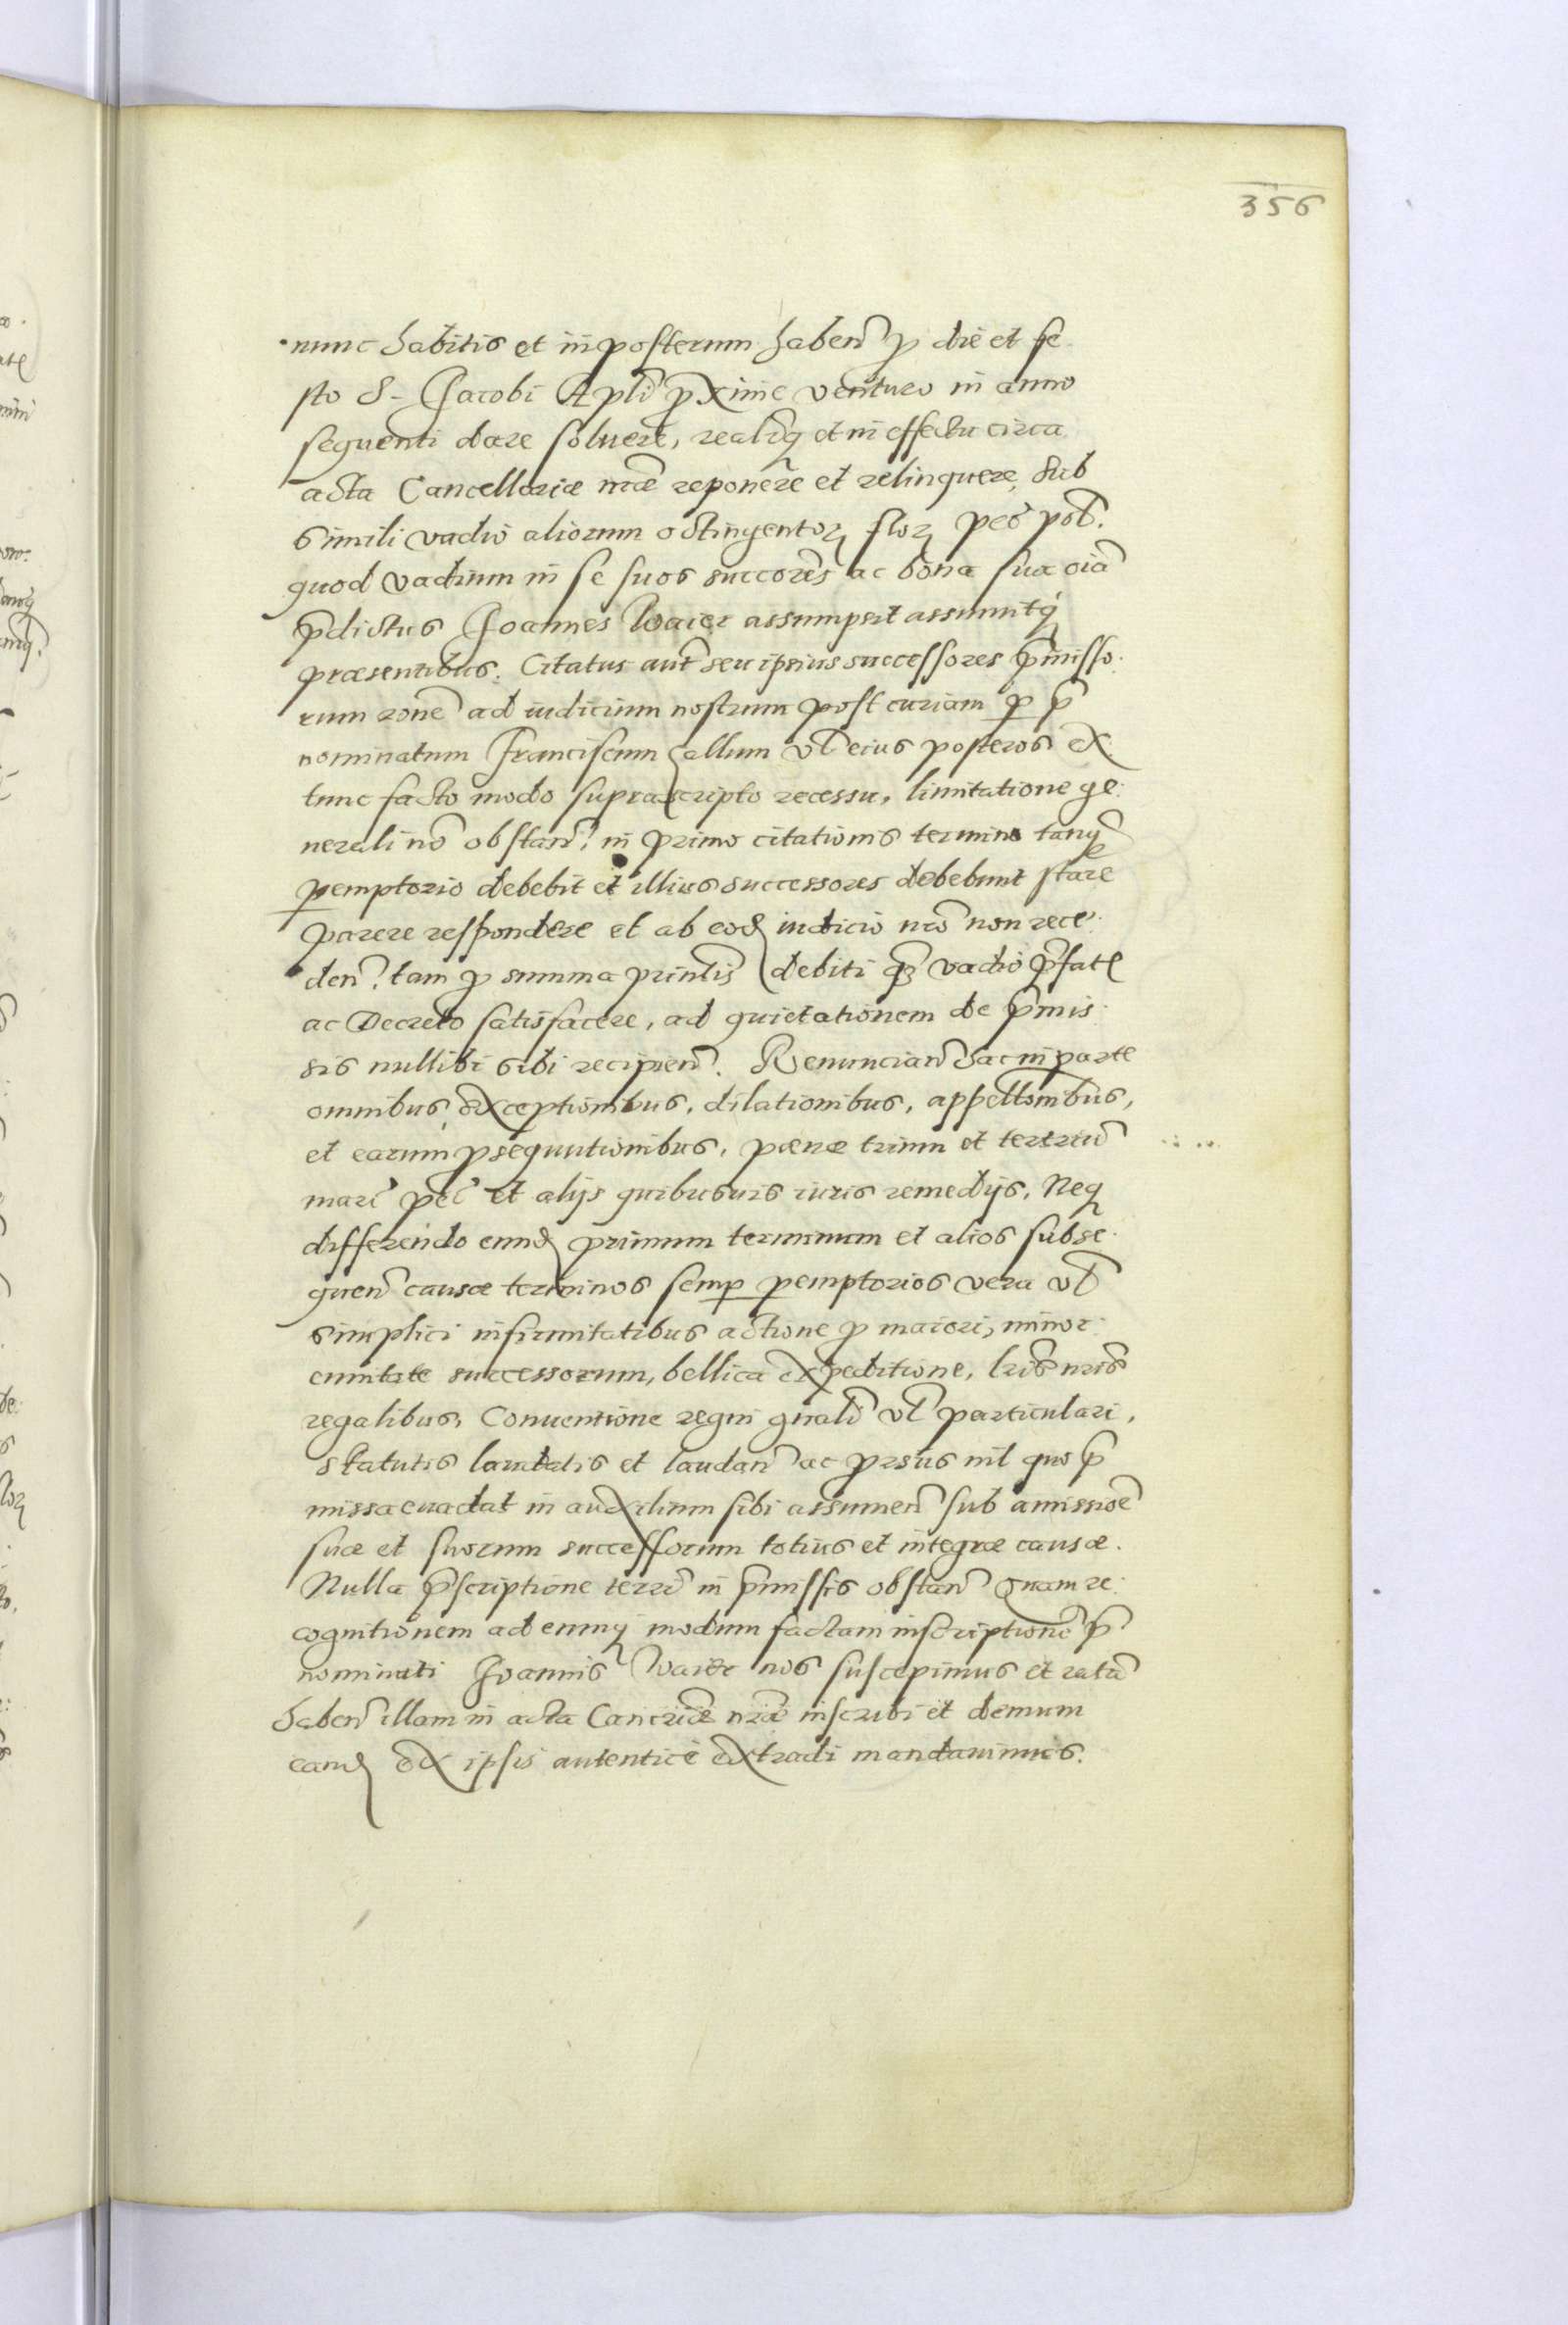 356
nunc habitis et in posterum haben̄ p die et fe-
sto S. Jacobi Apłi pxime venturo in anno
sequenti dare soluere, realiq; et in effectu circa
acta Cancellariæ nr̄æ reponere et relinquere, sub
simili vadio aliorum octingentoꝝ floꝝ pēs pol̄.
quod vadium in se suos succores ac bona sua oīa
p̄dictus Joannes Waier assumpsit assumitq;
præsentibus. Citatus aut̄ seu ipsius successores p̄misso-
rum rōne ad iudicium nostrum post curiam ꝑ p̄
nominatum Franciscum allum vl̄ eius posteros ex
tunc facto modo suprascripto recessu, limitatione ge:
nerali nō obstan̄. in primo citationis termino tanq̄
ꝑemptorio debebit et illius successores debebunt stare
parere respondere et ab eod iudicio nr̄o non rece:
den̄. tam p summa prinl̄is debiti q̄ꝫ vadio p̄fat
ac Decreto satisfacere, ad quietationem de p̄mis:
sis nullibi sibi recipien̄. Renuncian̄ hac in parte
omnibus exceptionibus, dilationibus, appellōnibus,
et earum psequutionibus, pœnæ trium et tertriū
mar̄ pec̄ et alijs quibusuis iuris remedijs, Neq;
differendo eund primum terminum et alios subse:
quen̄ causæ terminos semꝑ ꝑemptorios vera vl̄
simplici infirmitatibus actione p maiori, minor:
ennitate successorum, bellica expeditione, lr̄is nr̄is
regalibus, Conuentione regni gnal̄i vl̄ particulari,
statutis laudatis et laudan̄ ac prsus nil quo p̄
missa euadat in auxilium sibi assumen̄ sub amissiōe
suæ et suorum successorum totius et integræ causæ.
Nulla p̄scriptione terrē in p̄missis obstan̄ Quam re:
cognitionem ad eumq; modum factam inscriptionē p̄
nominati Joannis Waier nos suscepimus et ratā
haben̄ illam in acta Cancriæ nr̄æ inscribi et demum
eand ex ipsis autentice extradi mandauimus.